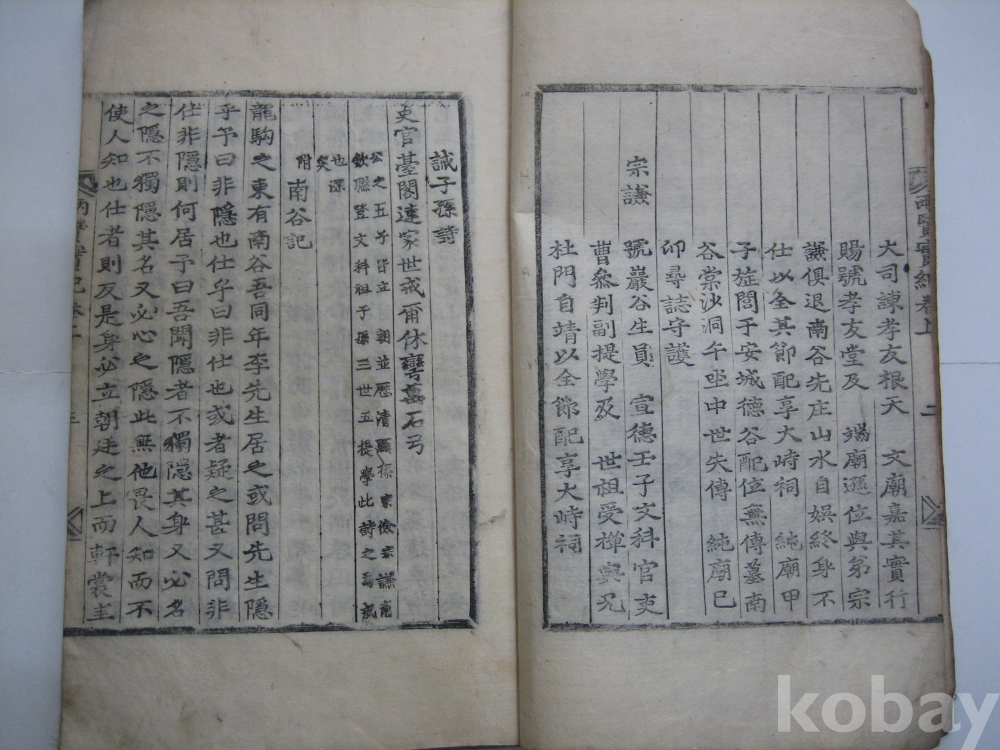 大司諫孝友根天 文廟嘉其實行
賜號孝友堂及 端廟遜位與弟宗
謙俱退南谷先庄山水自娛終身不
仕以全其節配享大峙祠 純廟甲
子旌閭于安城德谷配位無傳墓南
谷棠沙洞午坐中世失傳 純廟巳
卯尋誌守護
宗謙
號巖谷生員 宣德壬子文科官吏
曹參判副提學及 世祖受禪與兄
杜門自靖以全節配享大峙祠
兩賢實紀卷上
二
誡子孫詩
吏官臺閣連家世戒爾休彎石弓
公之五子皆立朝並歷清顯孫宗儉宗謙
欽聯登文科祖子孫三世五提學此詩之
也深
矣
附 南谷記
龍駒之東有南谷吾同年李先生居之或問先生隱
乎予曰非隱也仕乎曰非仕也或者疑之甚又問非
仕非隱則何居予曰吾聞隱者不獨隱其身又必名
之隱不獨隱其名又必心之隱此無他畏人知而不
使人知也仕者則反是身必立朝廷之上而軒裳圭
兩賢實紀卷上
三
kobay